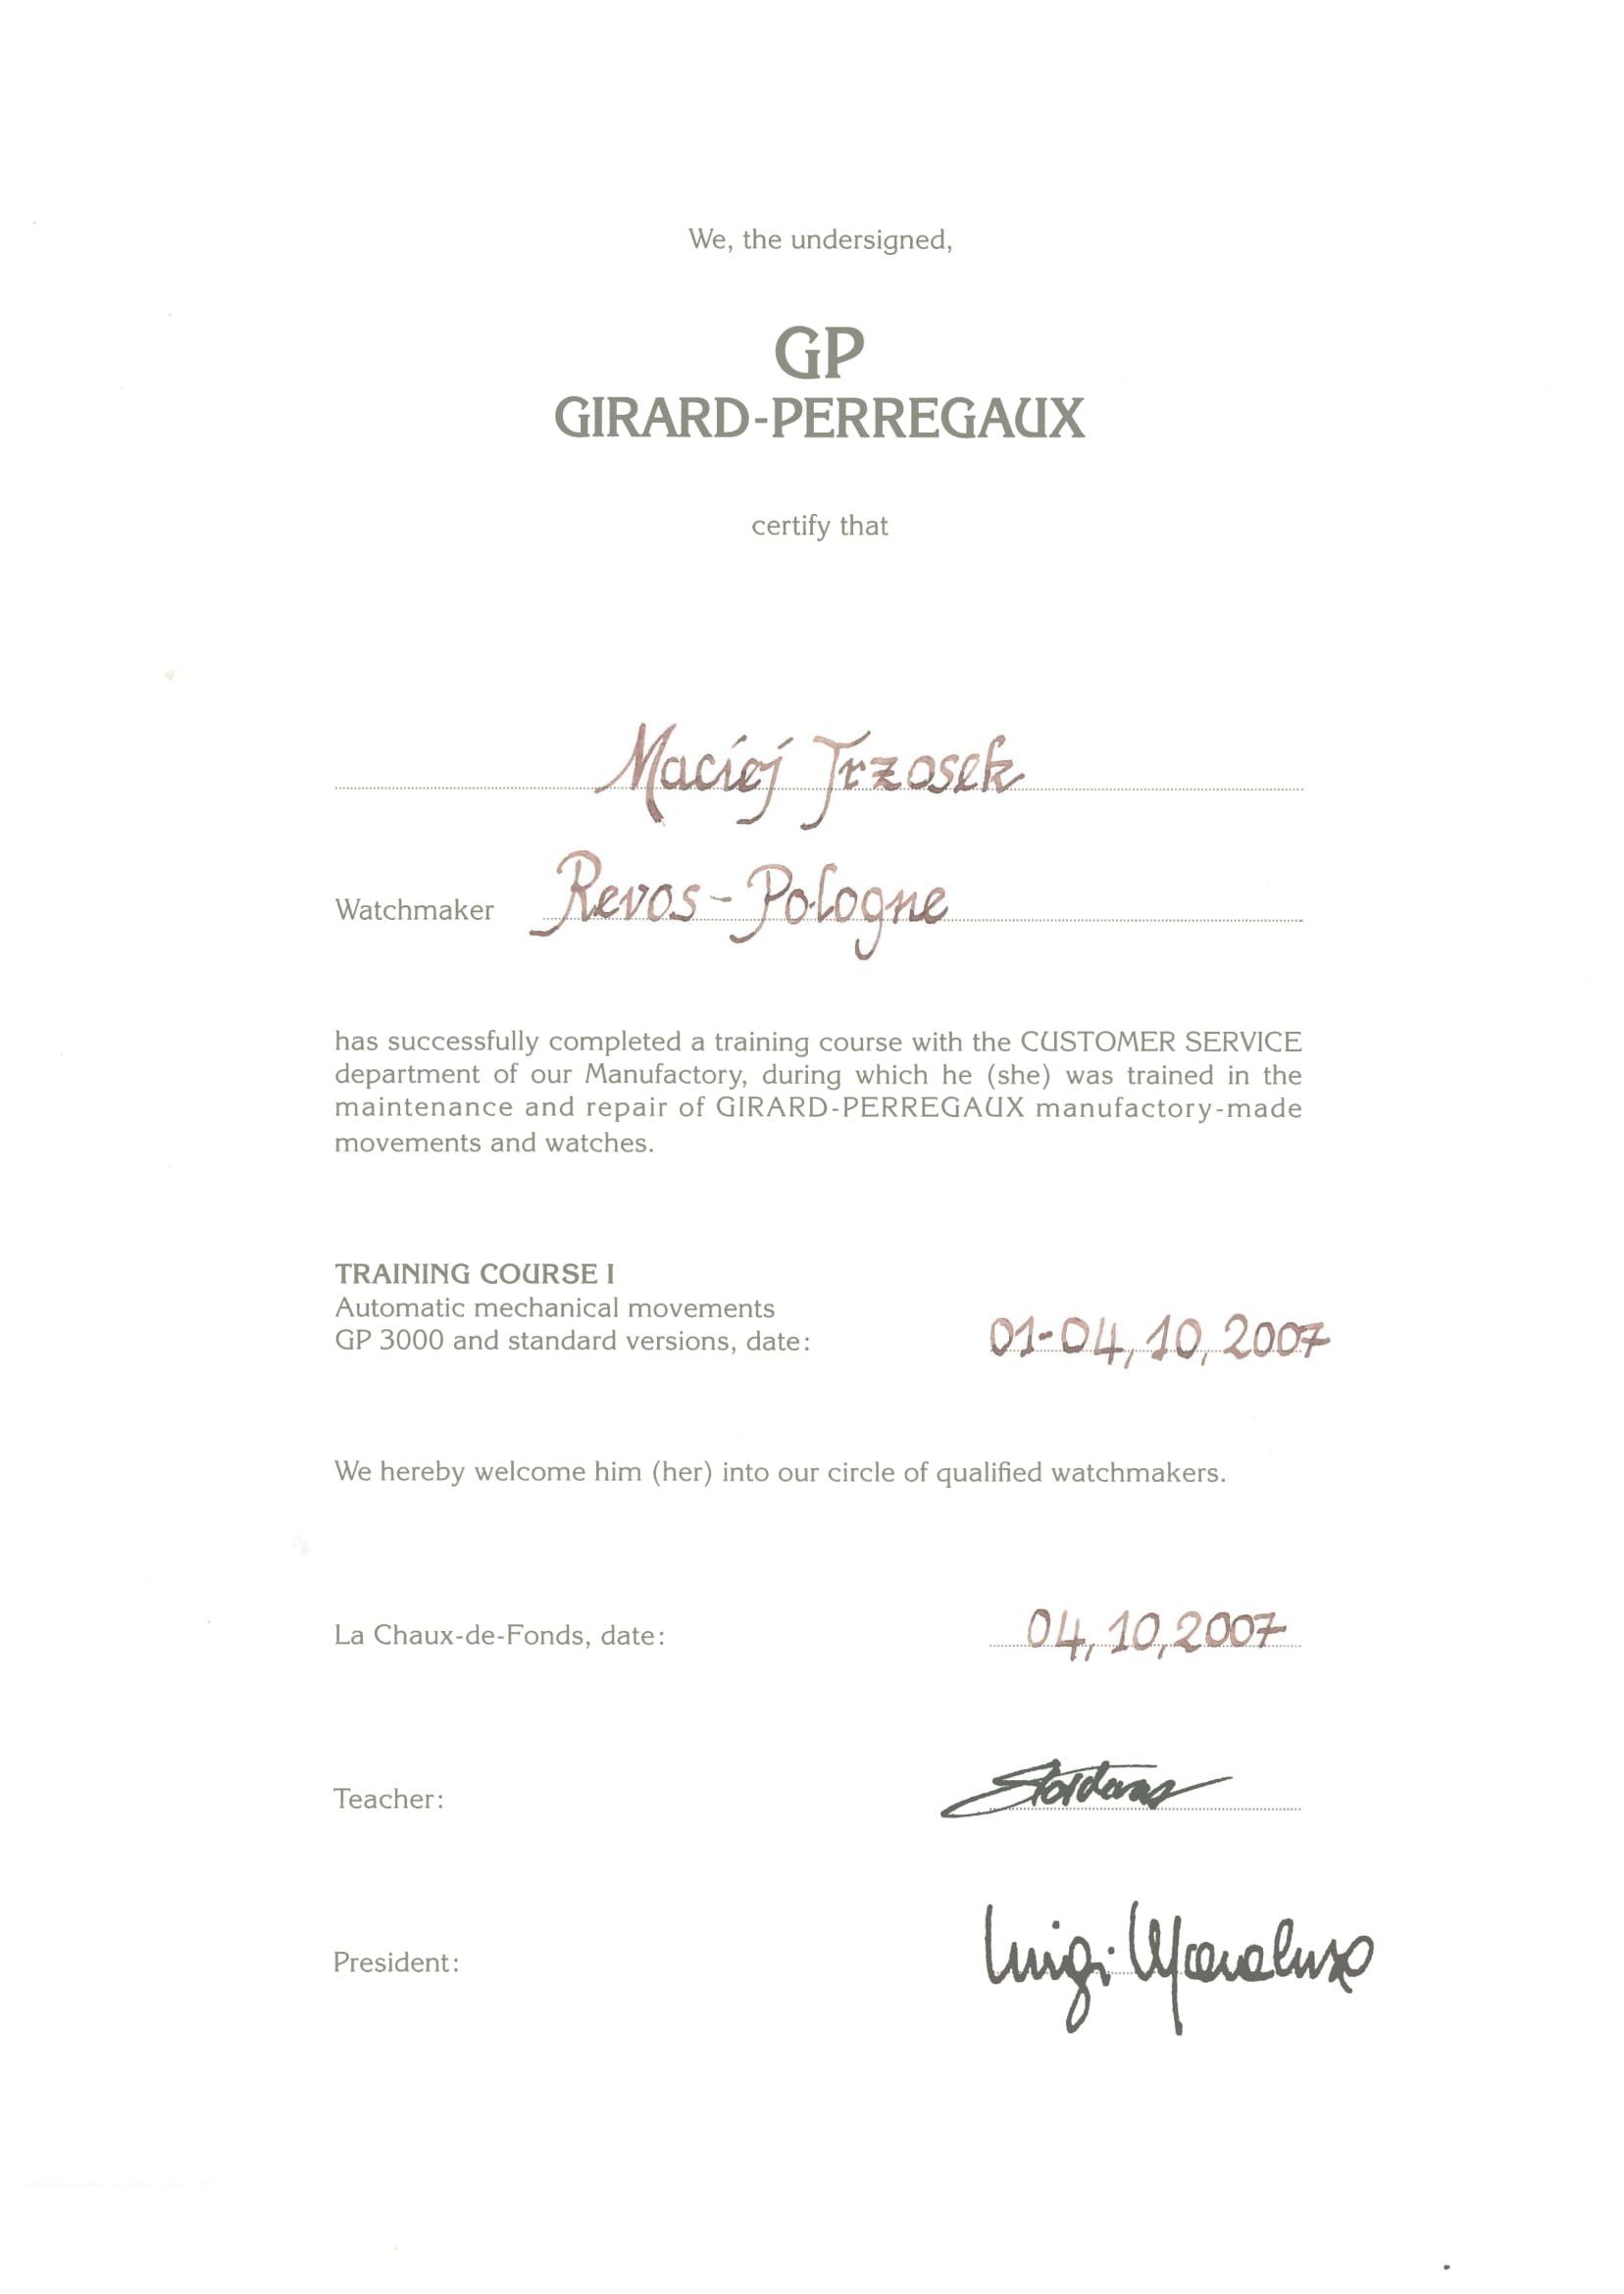 We, the undersigned,
GP
GIRARD-PERREGAUX
certify that
Maciej Trzosek
Watchmaker Revos-Pologne
has successfully completed a training course with the CUSTOMER SERVICE
department of our Manufactory, during which he (she) was trained in the
maintenance and repair of GIRARD-PERREGAUX manufactory-made
movements and watches.
TRAINING COURSE I
Automatic mechanical movements
GP 3000 and standard versions, date: 01-04,10,2007
We hereby welcome him (her) into our circle of qualified watchmakers.
La Chaux-de-Fonds, date: 04,10,2007
Teacher:
President: Luigi Macaluso